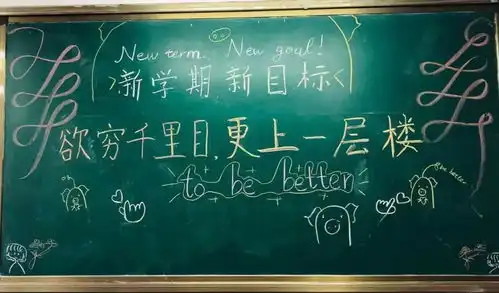 New term New goal!
新学期新目标
欲穷千里目,更上一层楼
to be better